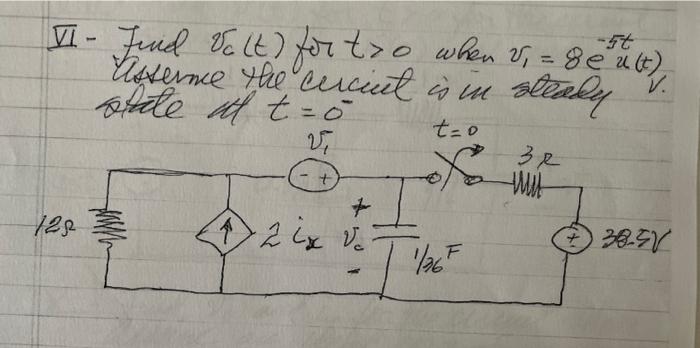 VI - Find Vc(t) for t>0 when V₁ = 8e^-5t u(t) V.
Assume the circuit is in steady
state at t = 0⁻
t=0
V₁
3Ω
- +
12Ω
2 ix
+
Vc
-
1/36 F
+
38.5V